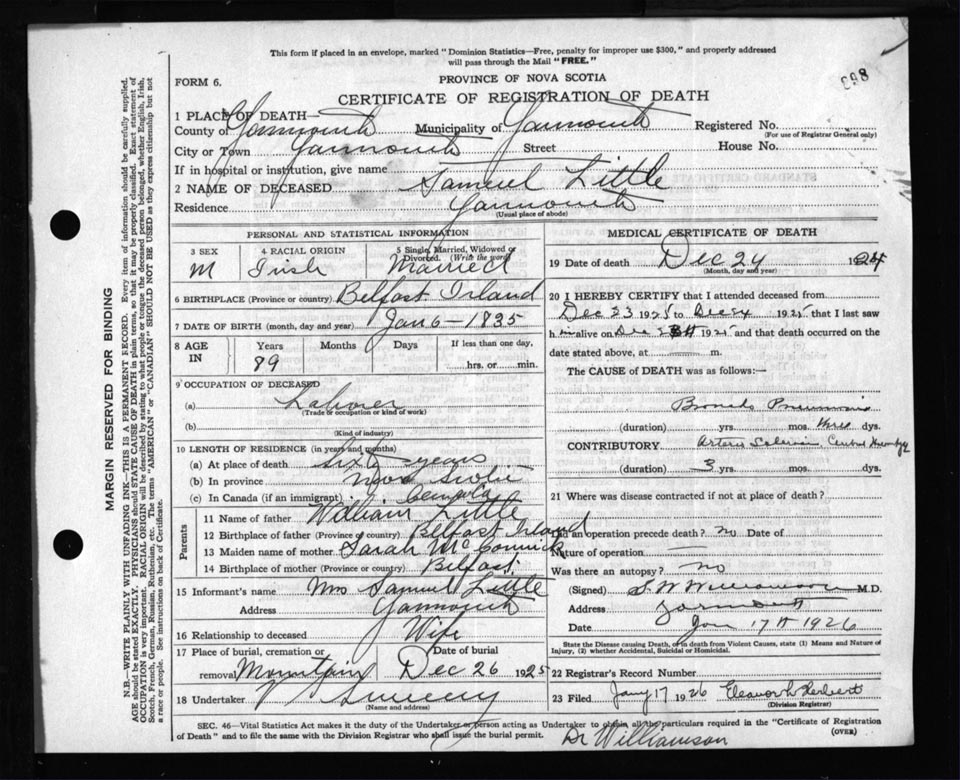 This form if placed in an envelope, marked "Dominion Statistics—Free, penalty for improper use $300," and properly addressed
will pass through the Mail "FREE."
FORM 6.
PROVINCE OF NOVA SCOTIA
898
CERTIFICATE OF REGISTRATION OF DEATH
1 PLACE OF DEATH—
County of Yarmouth Municipality of Yarmouth Registered No.
(For use of Registrar General only)
City or Town Yarmouth Street House No.
If in hospital or institution, give name
2 NAME OF DECEASED Samuel Little
Residence Yarmouth
(Usual place of abode)
PERSONAL AND STATISTICAL INFORMATION
3 SEX 4 RACIAL ORIGIN 5 Single, Married, Widowed or
Divorced. (Write the word)
M Irish Married
6 BIRTHPLACE (Province or country) Belfast Irland
7 DATE OF BIRTH (month, day and year) Jan 6 - 1835
8 AGE IN Years Months Days If less than one day,
89 hrs. or min.
9 OCCUPATION OF DECEASED
(a) Laborer
(Trade or occupation or kind of work)
(b)
(Kind of industry)
10 LENGTH OF RESIDENCE (in years and months)
(a) At place of death sixty years
(b) In province Nova Scotia
(c) In Canada (if an immigrant) Canada
Parents
11 Name of father William Little
12 Birthplace of father (Province or country) Belfast Irland
13 Maiden name of mother Sarah McCormick
14 Birthplace of mother (Province or country) Belfast
15 Informant's name Mrs Samuel Little
Address Yarmouth
16 Relationship to deceased Wife
17 Place of burial, cremation or Date of burial
removal Mountain Dec 26 1925
18 Undertaker V Sweeny
(Name and address)
MEDICAL CERTIFICATE OF DEATH
19 Date of death Dec 24 192
(Month, day and year)
20 I HEREBY CERTIFY that I attended deceased from
Dec 23 1925 to Dec 24 1925 that I last saw
h im alive on Dec 1925 and that death occurred on the
date stated above, at m.
The CAUSE of DEATH was as follows:—
Broncho Pneumonia
(duration) yrs. mos. three dys.
CONTRIBUTORY
(duration) 3 yrs. mos. dys.
21 Where was disease contracted if not at place of death?
Did an operation precede death? no Date of
Nature of operation —
Was there an autopsy? no
(Signed) S. W Williamson M.D.
Address Yarmouth
Date Jan 17th 1926
State the Disease causing Death, or in death from Violent Causes, state (1) Means and Nature of
Injury, (2) whether Accidental, Suicidal or Homicidal.
22 Registrar's Record Number
23 Filed Jany 17 1926 Eleanor L Herbert
(Division Registrar)
SEC. 46—Vital Statistics Act makes it the duty of the Undertaker or person acting as Undertaker to obtain all the particulars required in the "Certificate of Registration
of Death" and to file the same with the Division Registrar who shall issue the burial permit.
(OVER)
Dr Williamson
MARGIN RESERVED FOR BINDING
N.B.—WRITE PLAINLY WITH UNFADING INK—THIS IS A PERMANENT RECORD. Every item of information should be carefully supplied.
AGE should be stated EXACTLY. PHYSICIANS should STATE CAUSE OF DEATH in plain terms, so that it may be properly classified. Exact statement of
OCCUPATION is very important. RACIAL ORIGIN will be described by stating to what people or tongue the deceased person belonged, whether English, Irish,
Scotch, French, German, Russian, Ruthenian, etc. The terms "AMERICAN" or "CANADIAN" SHOULD NOT BE USED as they express citizenship but not
a race or people. See instructions on back of Certificate.